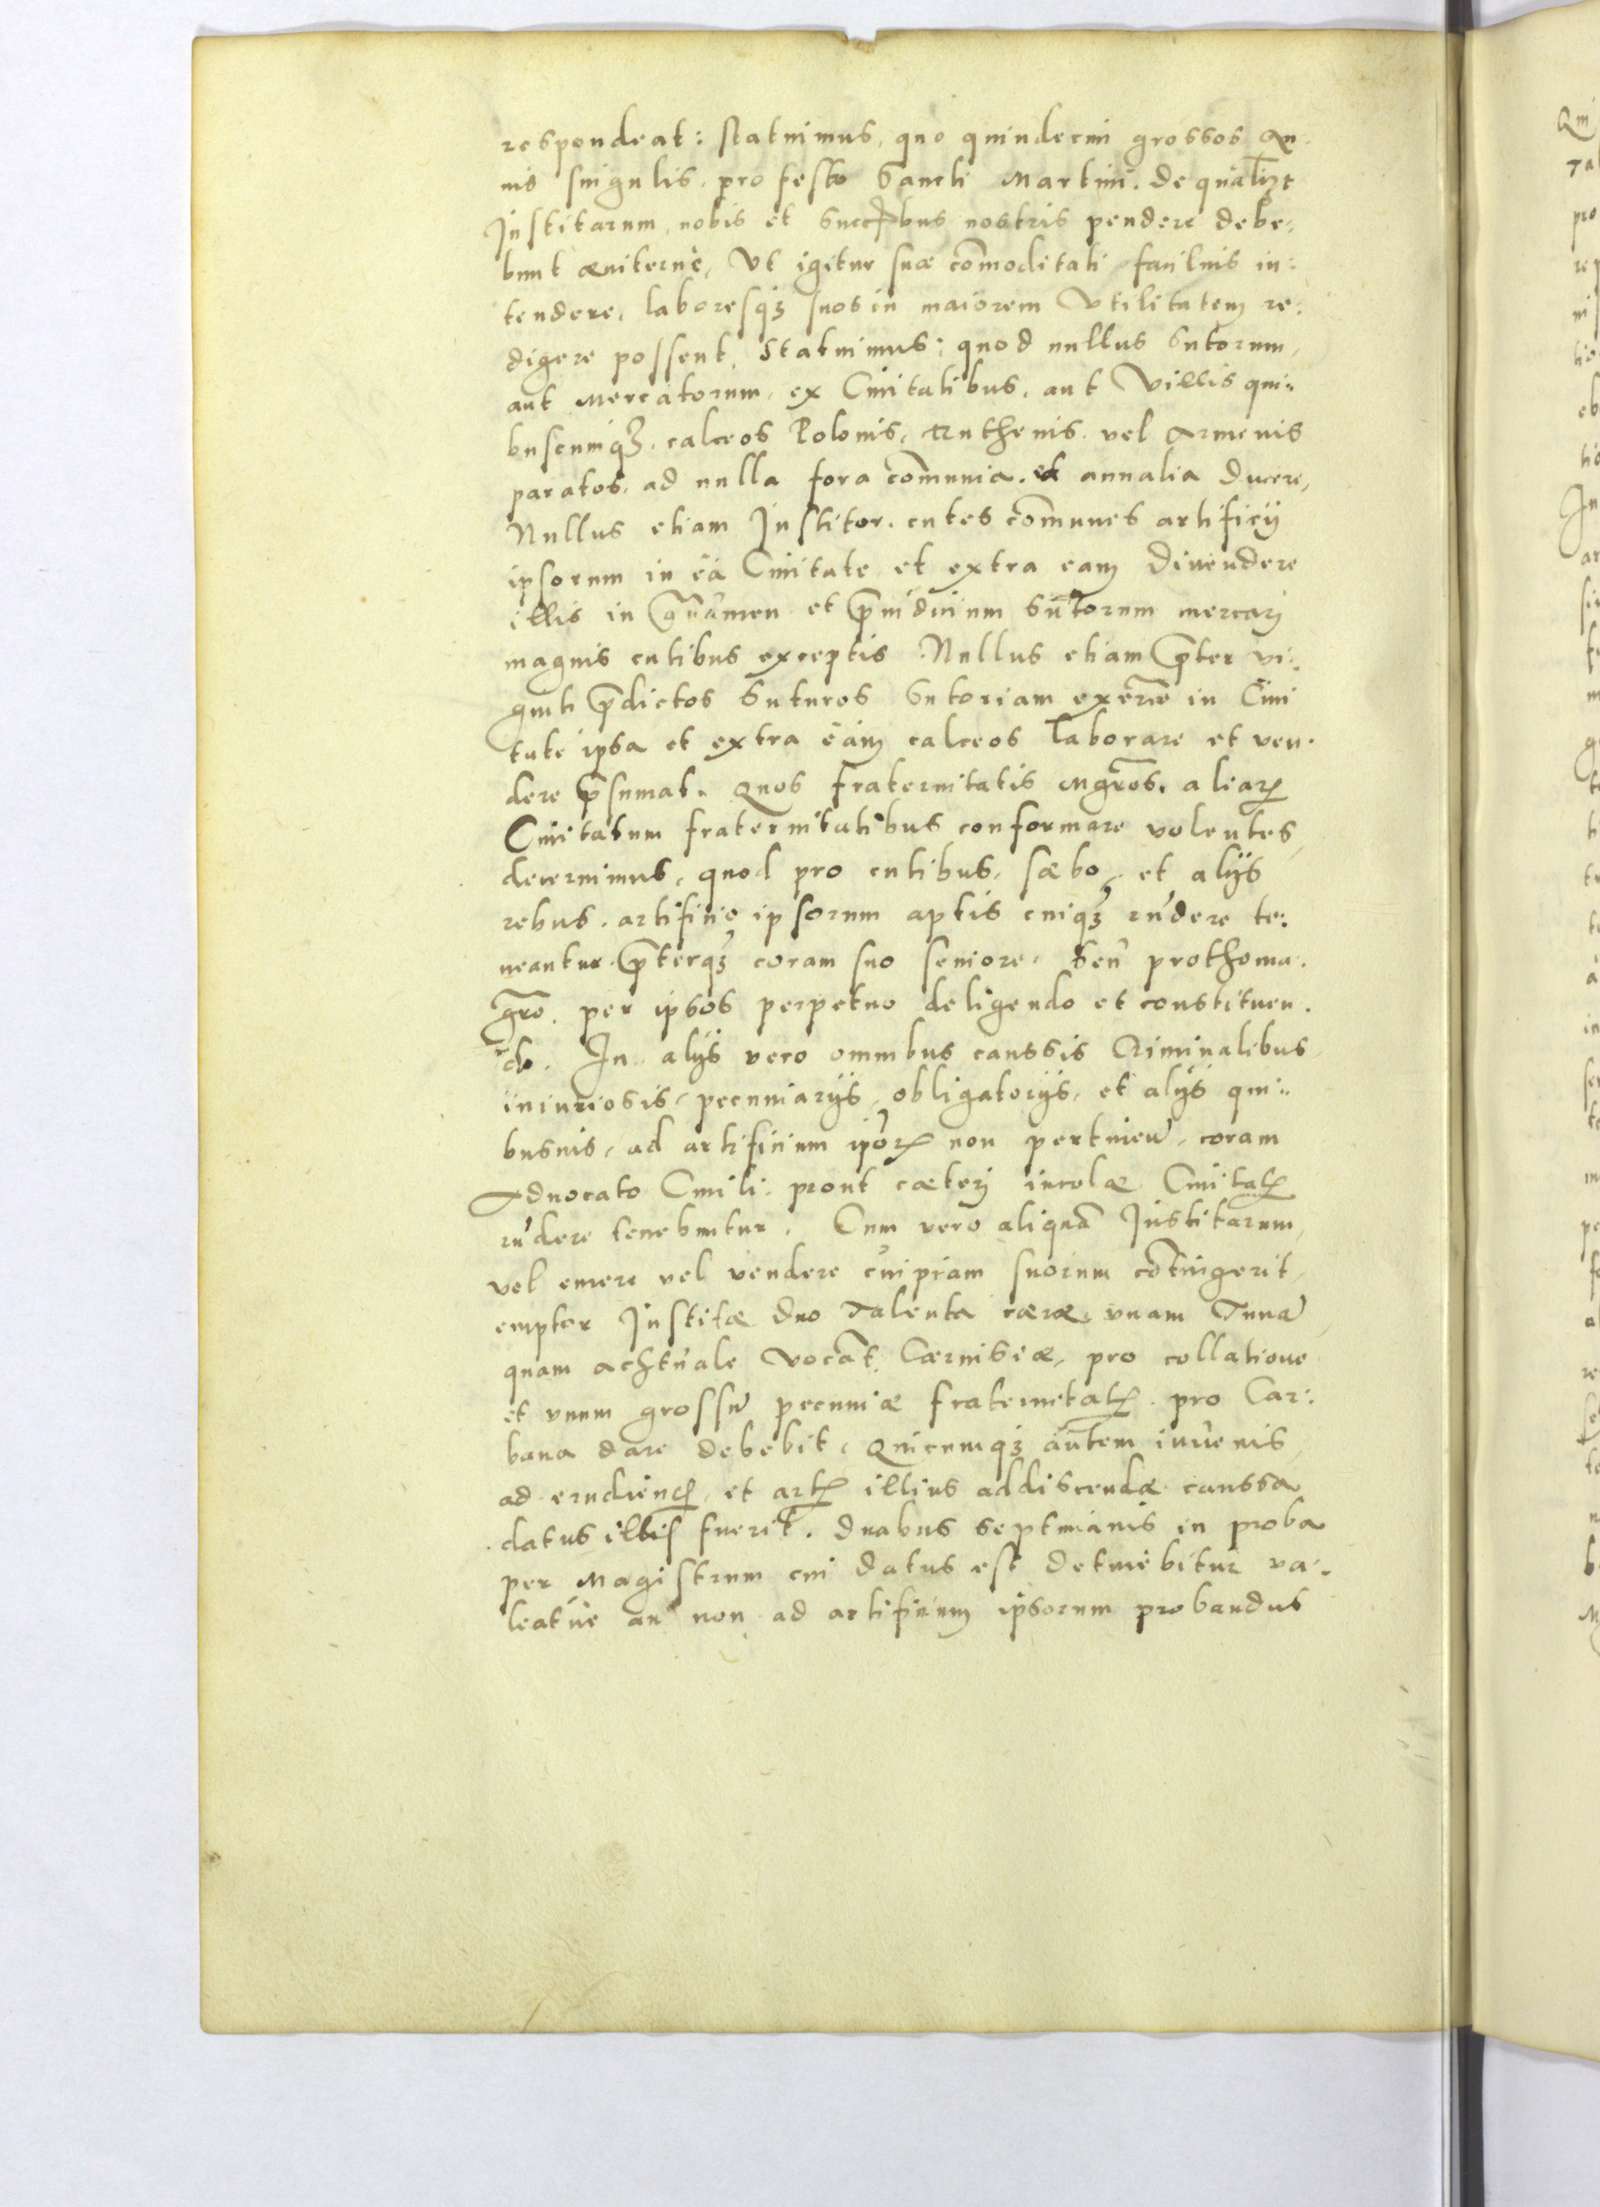 respondeat: statuimus, quo quindecim grossos an-
nis singulis, pro festo Sancti Martini. de qualibet
Institarum, nobis et Succ̄bus nostris pendere debe:
bunt æuiterne, Ut igitur suæ cōmoditati facilius in:
tendere, laboresq̄ suos in maiorem Utilitatem re:
digere possent, Statuimus: quod nullus Sutorum,
aut Mercatorum, ex Ciuitatibus, aut Villis qui:
buscumq̄, calceos Polonis, Ruthenis, vel Armenis
paratos, ad nulla fora cōmunia, et annalia Ducere,
Nullus etiam Institor, cutes cōmunes artificij
ipsorum in ea Ciuitate et extra eam Diuendere
illis in grauamen et p̄iudicium Sutorum mercari
magnis cutibus exceptis. Nullus etiam p̄ter vi:
ginti p̄dictos Sutores Sutoriam exerc̄e in Ciui
tate ipsa et extra eam calceos laborare et ven-
dere p̄sumat. Quos fraternitatis mḡros, aliaꝝ
Ciuitatum fraternitatibus conformare volentes,
decernimus, quod pro cutibus, sæbo, et alijs
rebus, artificio ipsorum aptis cuiq̄ rn̄dere te:
neantur p̄terq̄ coram suo seniore, Seu prothoma-
gr̄o, per ipsos perpetuo deligendo et constituen-
do. In alijs vero omnibus caussis Criminalibus
iniuriosis, pecuniarijs, obligatorijs, et alijs qui:
busuis, ad artificium ip̄oꝝ non pertinen̄, coram
Aduocato Ciuili, prout cæteri incolæ Ciuitatis
rn̄dere tenebuntur. Cum vero aliquā Institarum,
vel emere vel vendere cuipiam suorum cōtingerit,
emptor Institæ duo Talenta cæræ, vnam Tunā,
quam achtuale vocāt Cæruisiæ, pro collatione
et vnum grossū pecuniæ fraternitatis pro Car:
bana dare debebit, Quicumq̄ autem iuuenis,
ad erudiend̄, et artis illius addiscendæ caussa
datus illis fuerit, duabus septimanis in proba
per Magistrum cui datus est detinebitur va-
leatue an non ad artificium ipsorum probandus